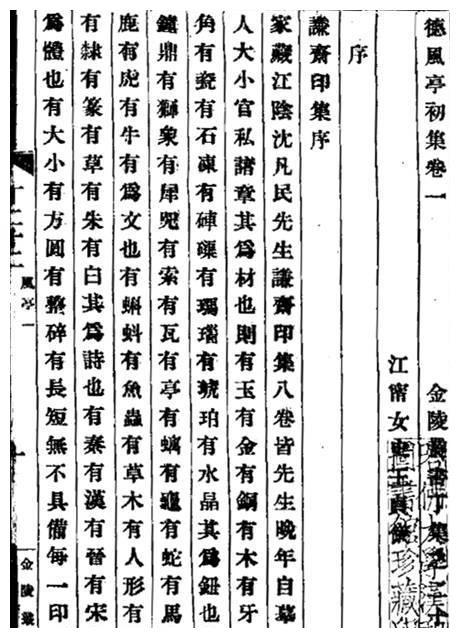 德風亭初集卷一　金陵叢書丁集之二十
江甯女史王貞儀
序
謙齋印集序
家藏江陰沈凡民先生謙齋印集八卷皆先生晚年自摹
人大小官私諸章其爲材也則有玉有金有銅有木有牙
角有瓷有石凍有硨磲有瑪瑙有琥珀有水晶其爲鈕也
鐘鼎有獅象有犀兕有索有瓦有亭有螭有龜有蛇有馬
鹿有虎有牛有爲文也有蝌蚪有魚蟲有草木有人形有
有隸有篆有草有朱有白其爲詩也有秦有漢有晉有宋
爲體也有大小有方圓有整碎有長短無不具備每一印
風亭一
金陵叢
哈佛大學漢
圖書館珍藏